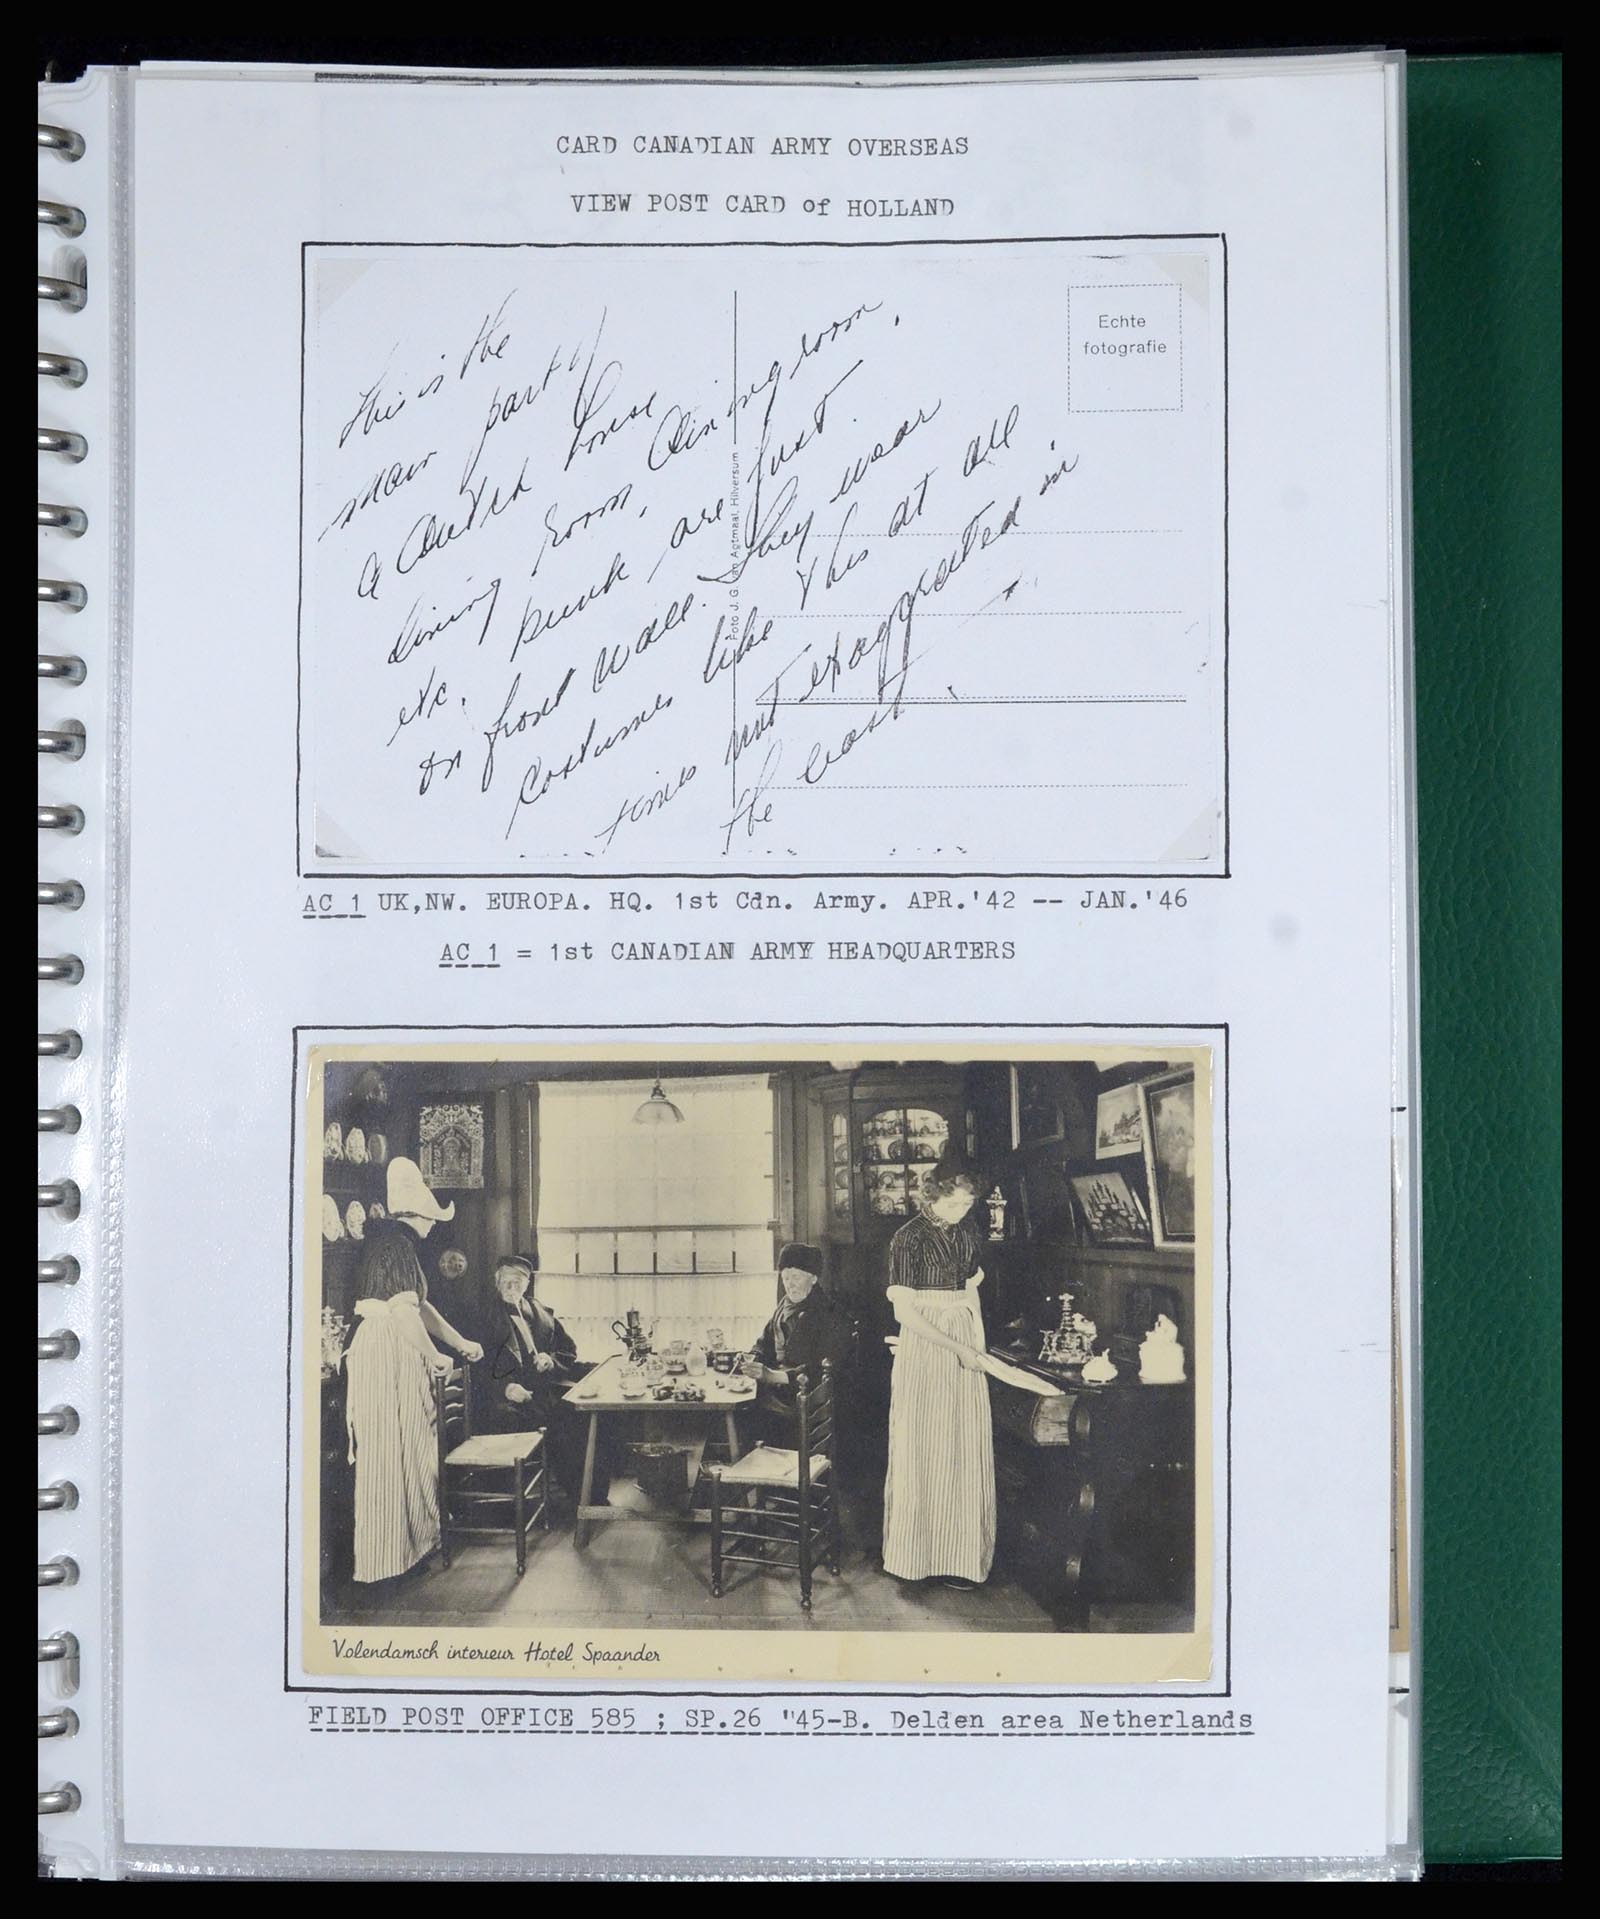 CARD CANADIAN ARMY OVERSEAS
VIEW POST CARD of HOLLAND
This is the
main part of
a Dutch house
living room, diningroom,
etc. bunk are just
on front wall. They wear
costumes like this at all
times not exaggerated in
the least.
Echte
fotografie
Foto J. G. van Agtmaal, Hilversum
AC 1 UK,NW. EUROPA. HQ. 1st Cdn. Army. APR.'42 -- JAN.'46
AC 1 = 1st CANADIAN ARMY HEADQUARTERS
Volendamsch interieur Hotel Spaander
FIELD POST OFFICE 585 ; SP.26 "45-B. Delden area Netherlands